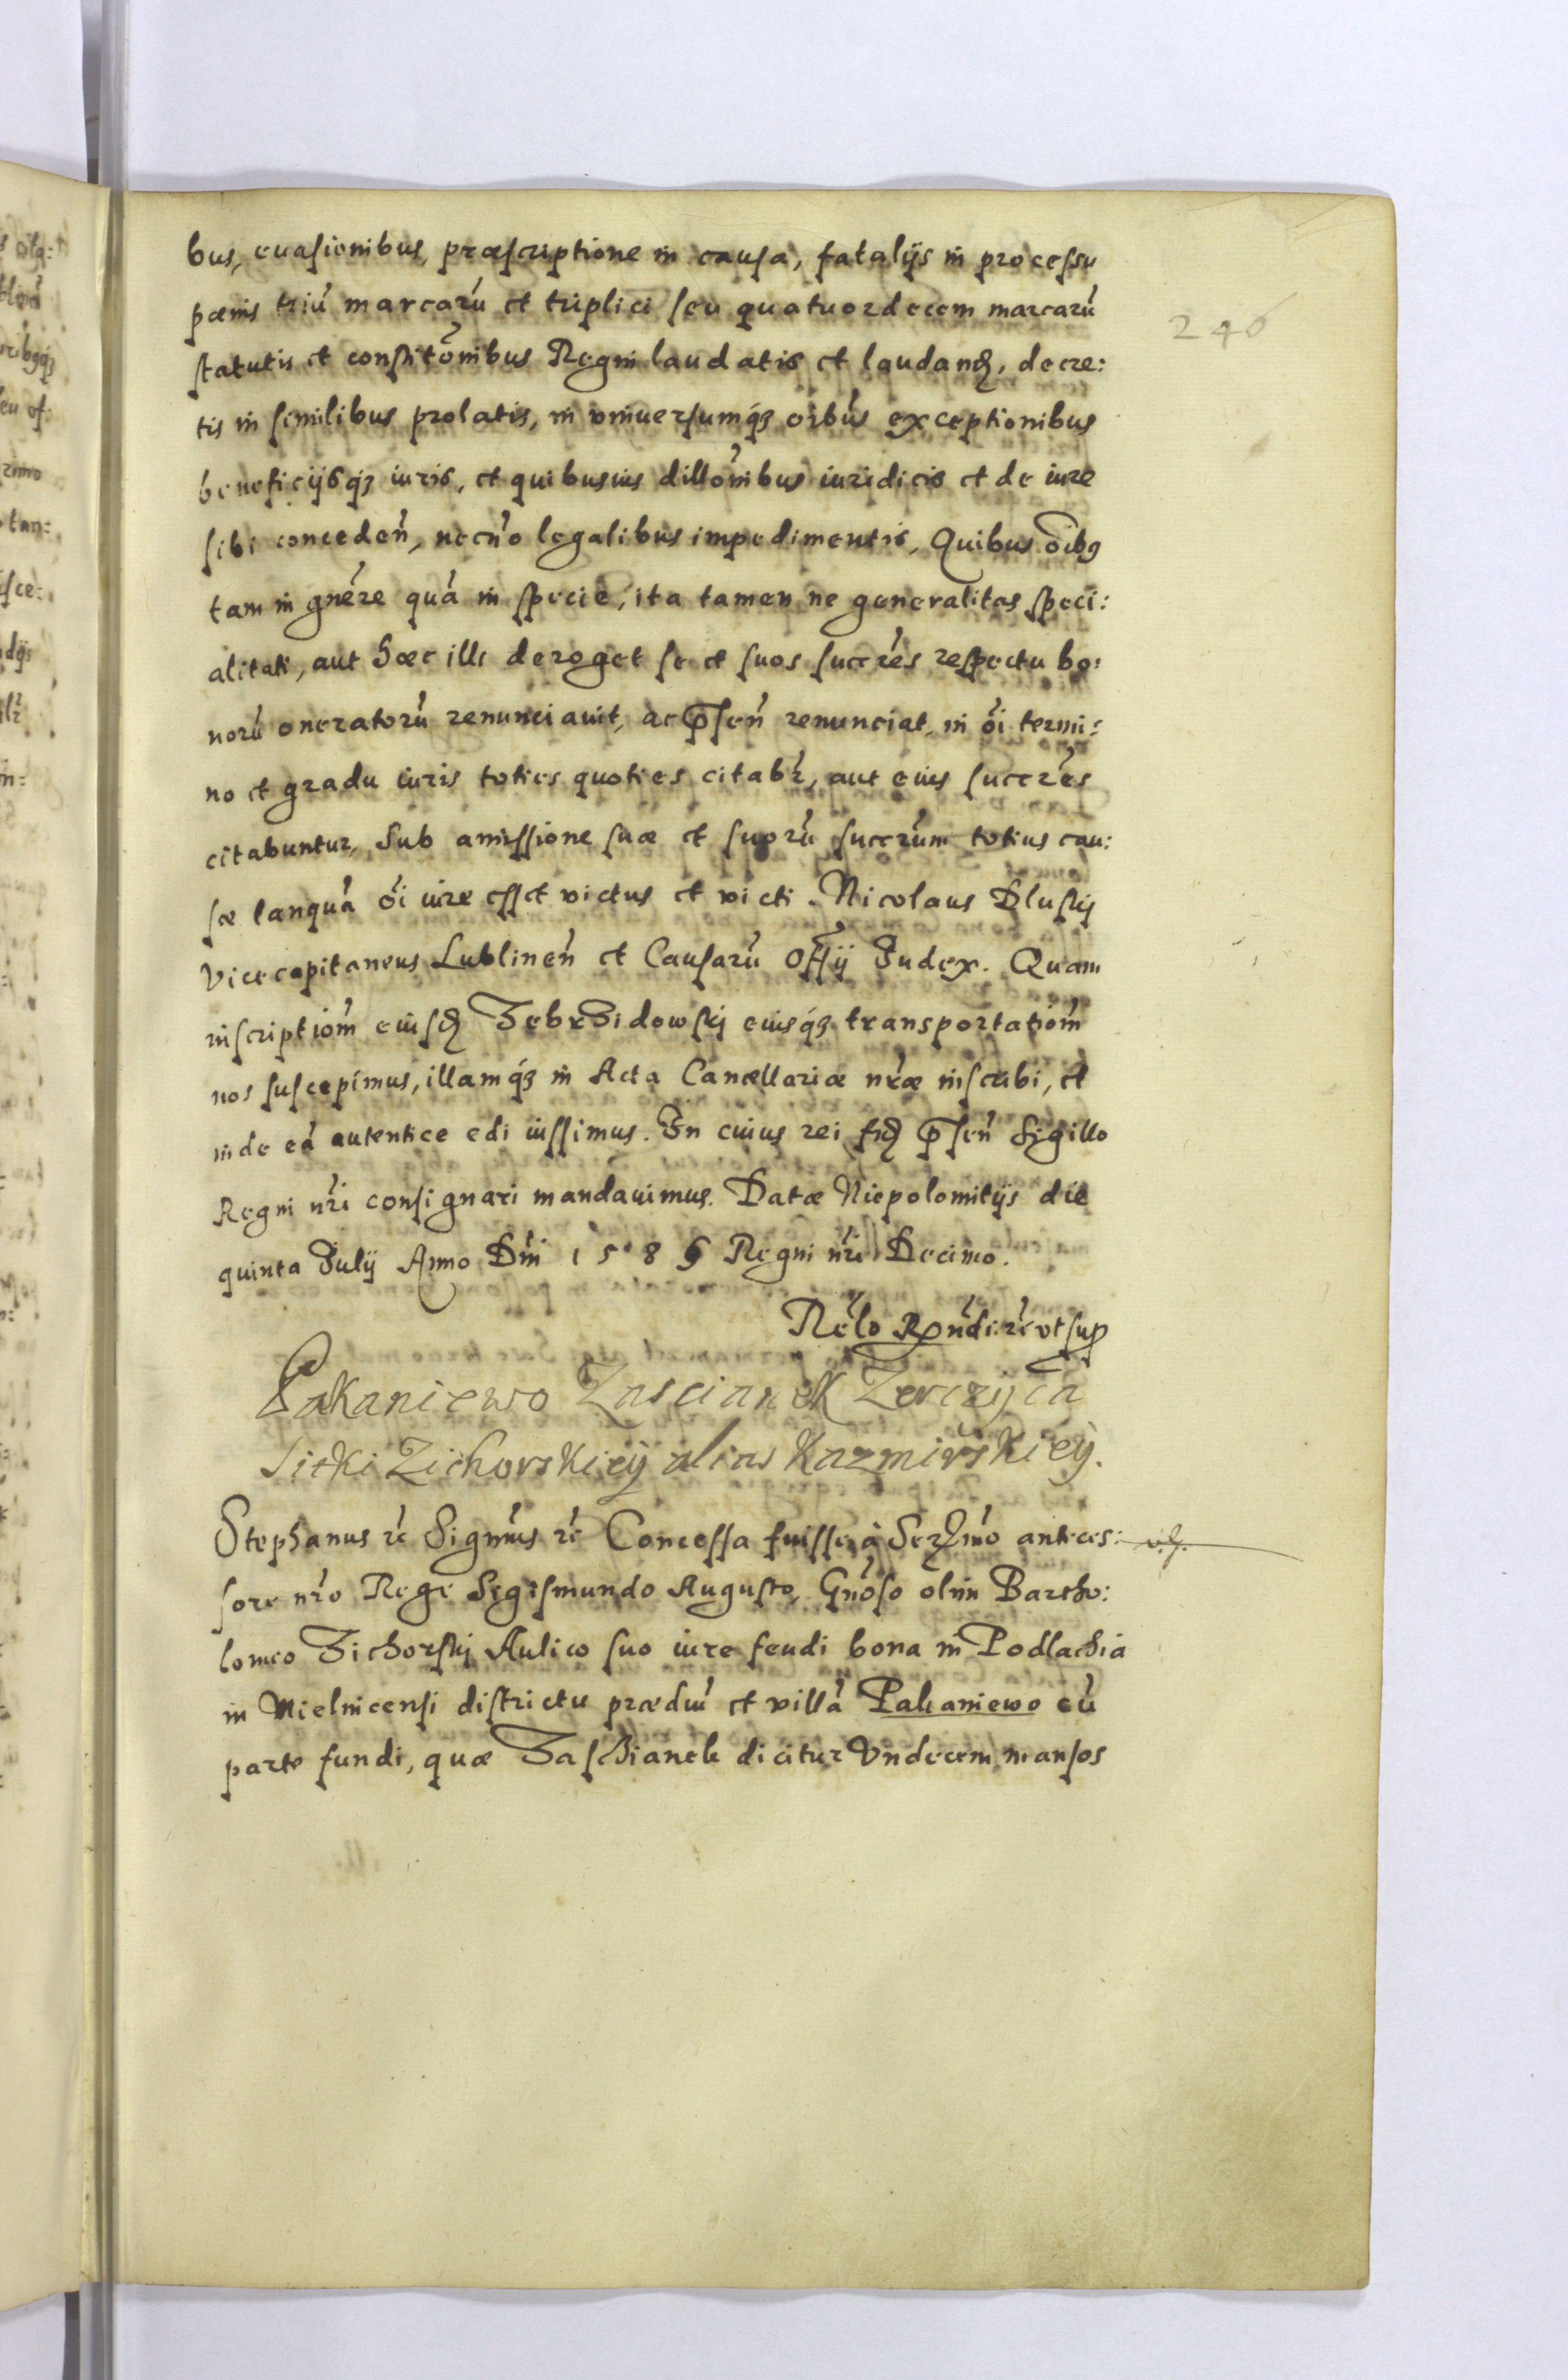 246
bus, euasionibus, præscriptione in causa, fatalijs in processu
pœnis triũ marcarũ et triplici seu quatuordecem marcarũ
statutis et constitõnibus Regni laudatis et laudand, decre:
tis in similibus prolatis, in vniuersumq3 oibũs exceptionibus
beneficijsq3 iuris, et quibusuis dillõnibus iuridicis et de iure
sibi conceden̄, necn̄o legalibus impedimentis, Quibus oĩbus
tam in gnẽre quã in specie, ita tamen ne generalitas speci:
alitati, aut hæc illi deroget se et suos succr̃es respectu bo:
norũ oneratorũ renunciauit, ac p̃sen̄ renunciat, in õi termi:
no et gradu iuris toties quoties citabr̃, aut eius succr̃es
citabuntur, Sub amissione suæ et suorũ succr̃um totius cau:
sæ tanquã õi iure esset victus et victi. Nicolaus Dluskj
Vicecapitaneus Lublinen̄ et Causarũ Offĩj Judex. Quam
inscriptiom̃ eiusd Zebrzidowskj eiusq3 transportatiom̃
nos suscepimus, illamq3 in Acta Cancellariæ nr̃æ inscribi, et
inde eã autentice edi iussimus. In cuius rei fid p̃sen̄ Sigillo
Regni nr̃i consignari mandauimus. Datæ Niepolomitijs die
quinta Julij Anno Dn̄i 1586 Regni nr̃i Decimo.
Rel̃o Rn̄di: rc̃ vt sup
Pakaniewo Zascianek Zerczyca
Sitki Zichorskiey alias Kazmirskiey.
Stephanus rc̃ Signm̃us rc̃ Concessa fuisse à Ser̃mo anteces:
sore nr̃o Rege Sigismundo Augusto, Gn̄oso olim Bartho:
lomeo Zichorskj Aulico suo iure feudi bona in Podlachia
in Mielnicensi districtu prædiũ et villã Pakaniewo cũ
parte fundi, quæ Zaschianek dicitur Vndecem mansos